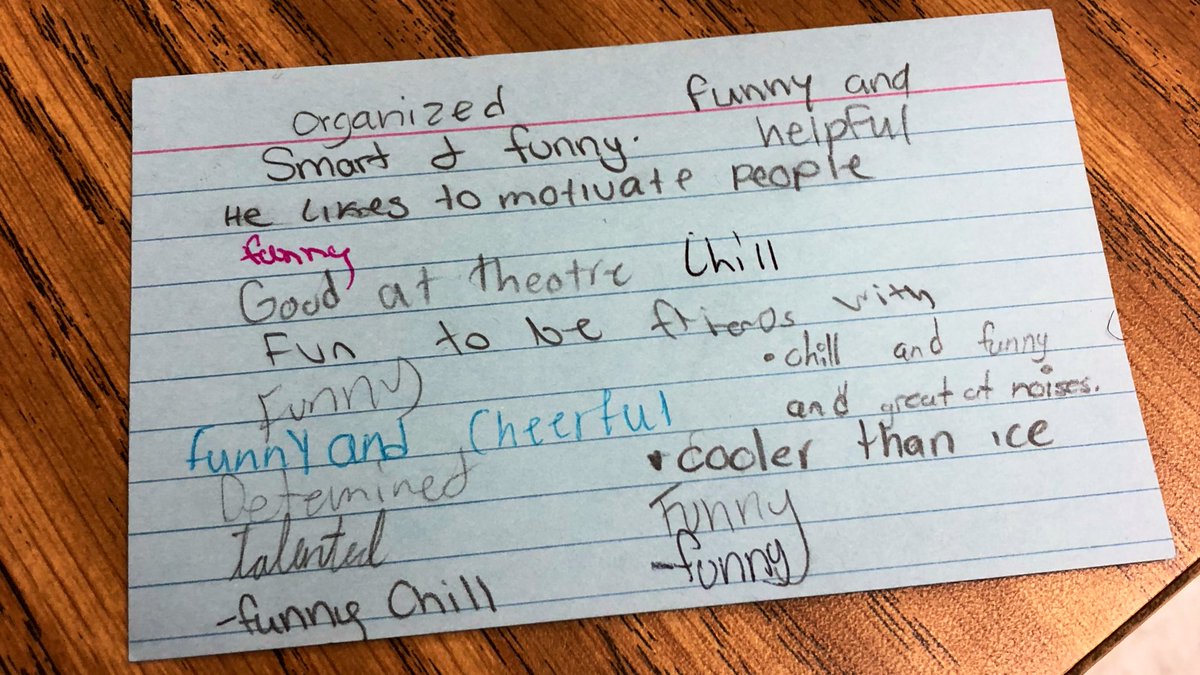 organized
funny and
helpful
Smart & funny.
He likes to motivate people
funny
Good at theatre
Chill
Fun to be friends with
• chill and funny
and great at noises.
Funny
funny and Cheerful
• cooler than ice
Detemined
talented
Funny
-funny
-funny Chill